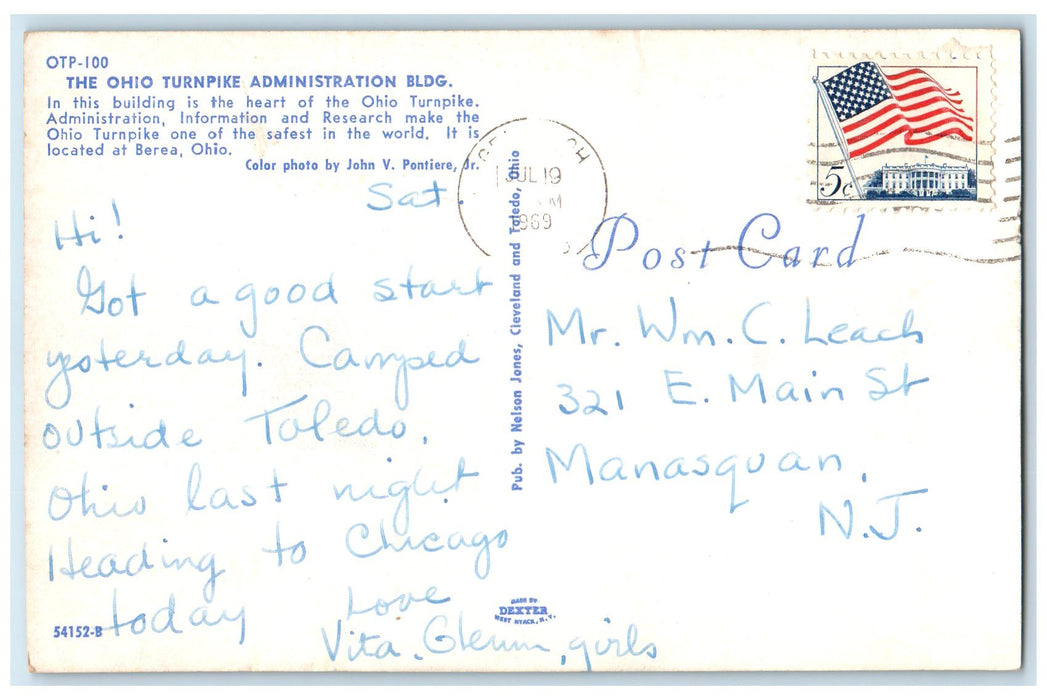 OTP-100
THE OHIO TURNPIKE ADMINISTRATION BLDG.
In this building is the heart of the Ohio Turnpike.
Administration, Information and Research make the
Ohio Turnpike one of the safest in the world. It is
located at Berea, Ohio.
Color photo by John V. Pontiere, Jr.
Sat.
Hi!
Got a good start
yesterday. Camped
outside Toledo,
Ohio last night
Heading to Chicago
today
Love
Vita, Glenn, girls
54152-B
Pub. by Nelson Jones, Cleveland and Toledo, Ohio
MADE BY
DEXTER
WEST NYACK, N.Y.
JUL 19
M
1969
5c
Post Card
Mr. Wm. C. Leach
321 E. Main St
Manasquan,
N.J.